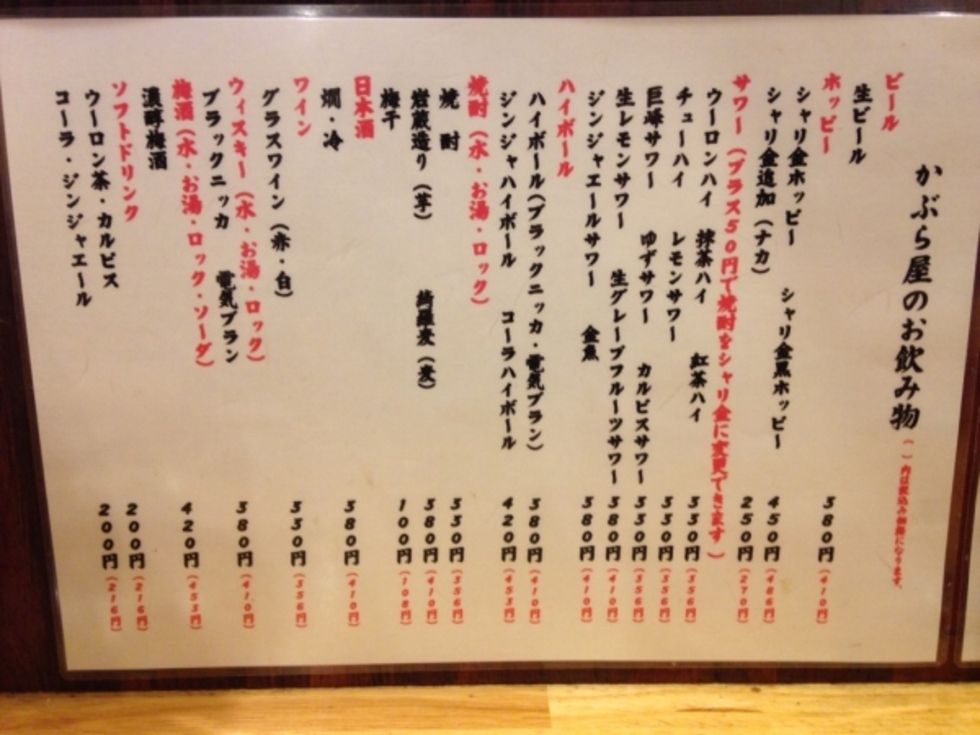 かぶら屋のお飲み物 （　）内は税込み価格になります。
ビール
生ビール 380円（410円）
ホッピー
シャリ金ホッピー シャリ金黒ホッピー 450円（486円）
シャリ金追加（ナカ） 250円（270円）
サワー（プラス50円で焼酎をシャリ金に変更できます）
ウーロンハイ 抹茶ハイ 紅茶ハイ 330円（356円）
チューハイ レモンサワー 330円（356円）
巨峰サワー ゆずサワー カルピスサワー 330円（356円）
生レモンサワー 生グレープフルーツサワー 380円（410円）
ジンジャエールサワー 金魚 380円（410円）
ハイボール
ハイボール（ブラックニッカ・電気ブラン） 380円（410円）
ジンジャハイボール コーラハイボール 420円（453円）
焼酎（水・お湯・ロック）
焼酎 330円（356円）
岩蔵造り（芋） 綺羅麦（麦） 380円（410円）
梅干 100円（108円）
日本酒
燗・冷 380円（410円）
ワイン
グラスワイン（赤・白） 330円（356円）
ウィスキー（水・お湯・ロック）
ブラックニッカ 電気ブラン 380円（410円）
梅酒（水・お湯・ロック・ソーダ）
濃醇梅酒 420円（453円）
ソフトドリンク
ウーロン茶・カルピス 200円（216円）
コーラ・ジンジャエール 200円（216円）